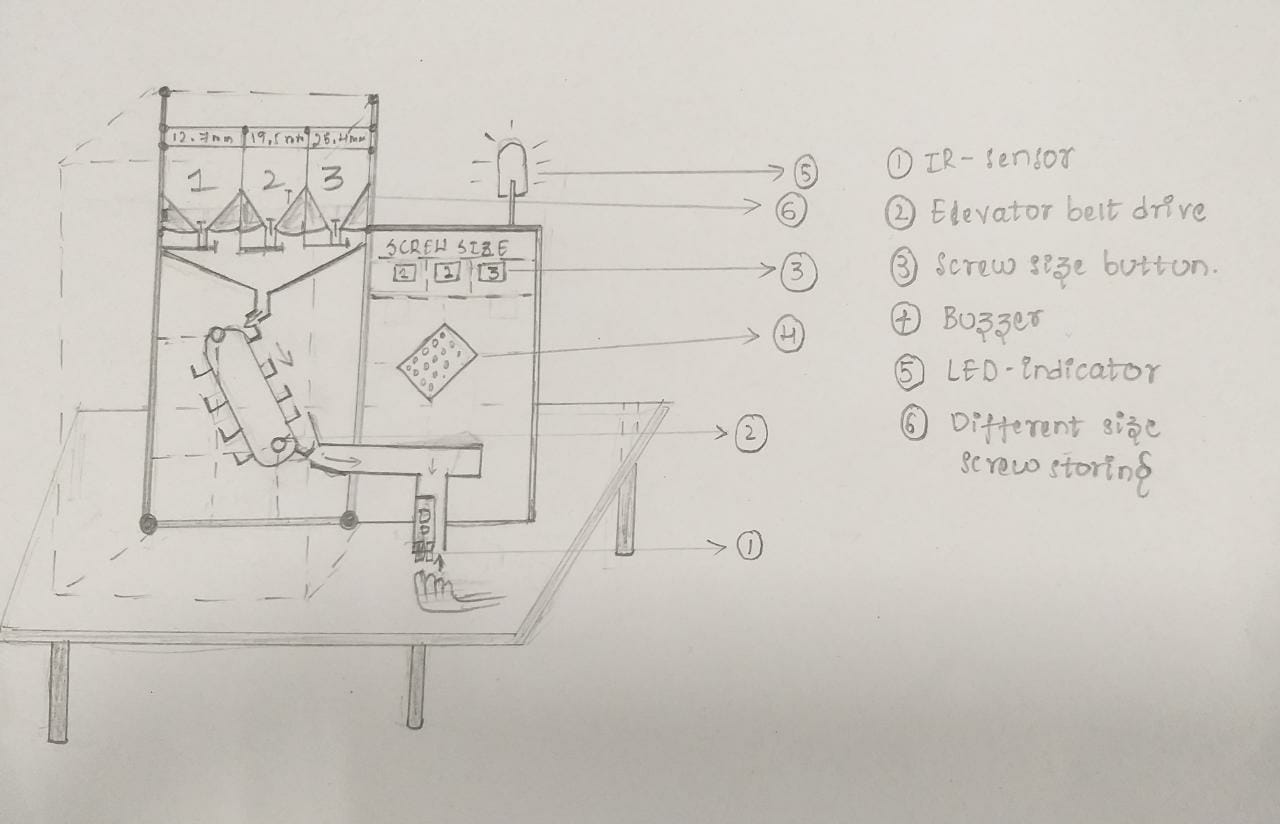 12.7mm 19,5mm 25.4mm
1 2 3
SCREW SIZE
1 2 3
5
6
3
4
2
1
① IR-sensor
② Elevator belt drive
③ Screw size button.
④ Buzzer
⑤ LED-indicator
⑥ Different size
screw storing